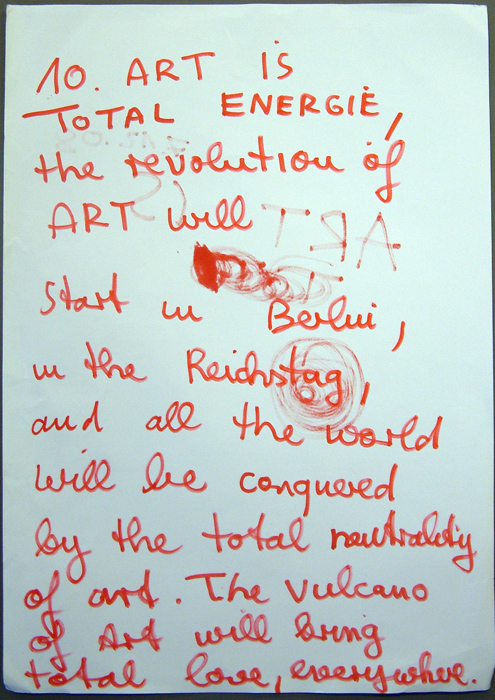 10. ART IS
TOTAL ENERGIË,
the revolution of
ART will
Start in Berlin,
in the Reichstag,
and all the world
will be conquered
by the total neutrality
of art. The vulcano
of Art will bring
total love, everywhere.